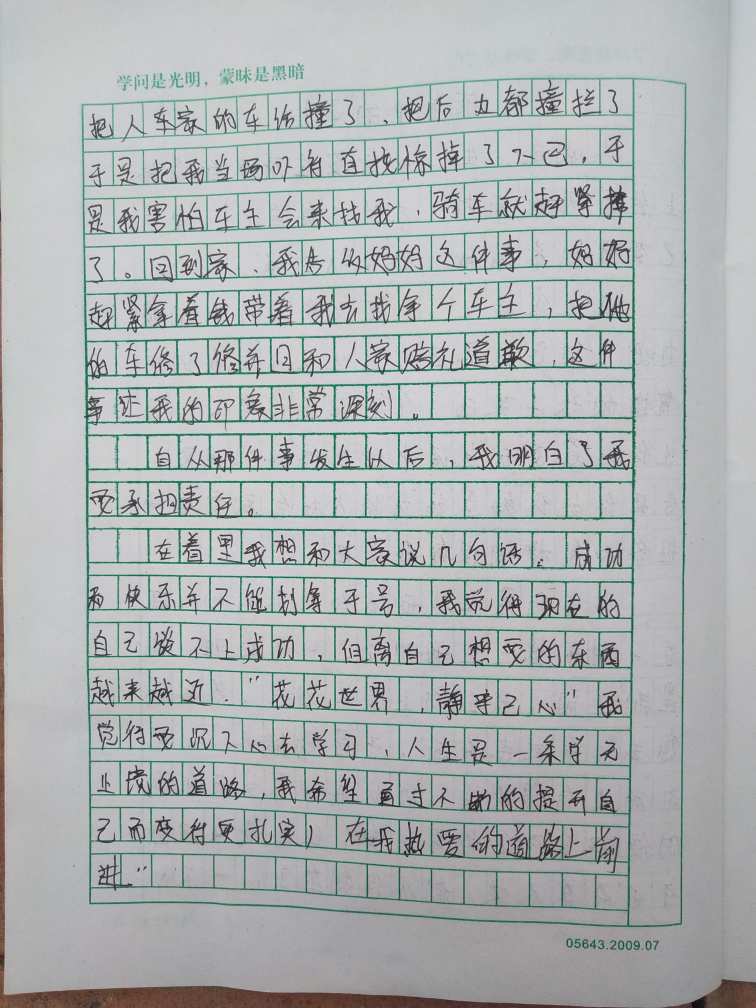 学问是光明，蒙昧是黑暗
把人车家的车给撞了、把后 都撞拦了
于是把我当场吓得直接惊掉了下巴，于
是我害怕车主会来找我，骑车就赶紧
了。回到家、我告 妈妈这件事，妈妈
赶紧拿着钱带着我去找 个车主，把他
的车修了修并且和人家赔礼道歉，这件
事 我的印象非常深刻。
自从那件事发生以后，我明白了我
要承担责任。
在着里我想和大家说几句话。成功
和快乐并不能划等于号，我觉得现在的
自己谈不上成功，但离自己想要的东西
越来越近．“花花世界，静守己心”我
觉得要沉下心去学习，人生是一条学无
止境的道路，我希望通过不断的提升自
己而变得更扎实， 在我热爱的道路上前
进”
05643.2009.07